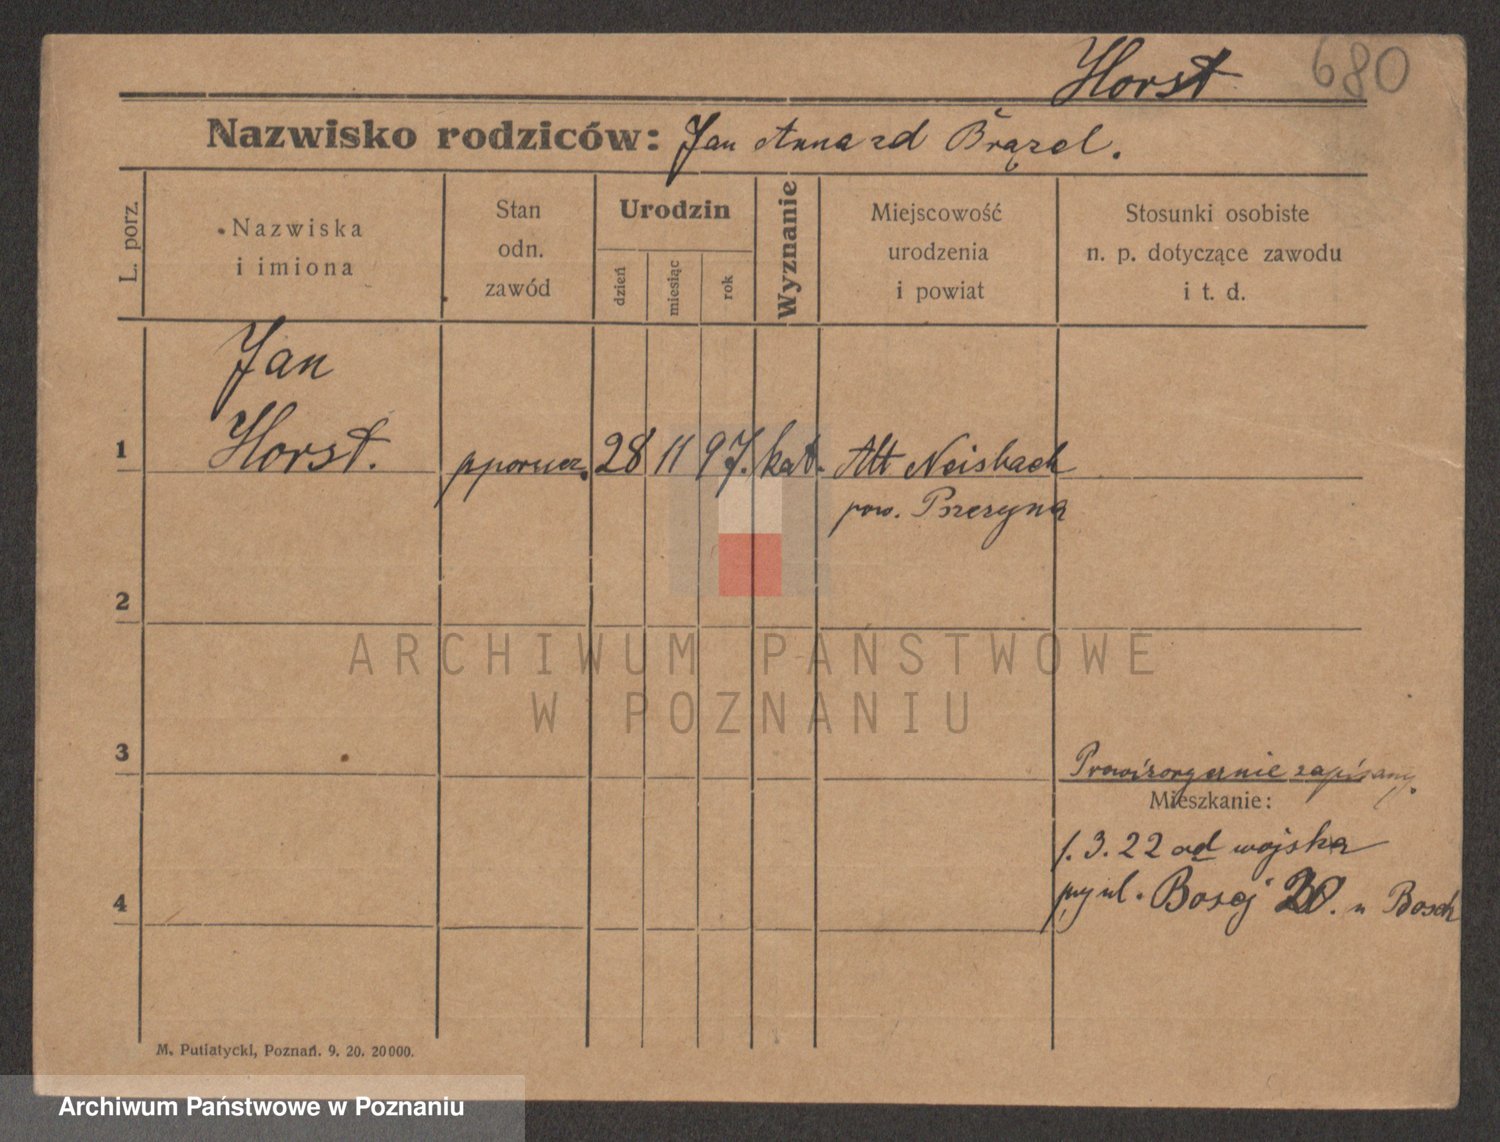 Horst 680
Nazwisko rodziców: Jan Anna zd Brązel.
L. porz.
Nazwiska
i imiona
Stan
odn.
zawód
Urodzin
dzień
miesiąc
rok
Wyznanie
Miejscowość
urodzenia
i powiat
Stosunki osobiste
n. p. dotyczące zawodu
i t. d.
Jan
1 Horst. pporucz. 28 11 97. kat. Alt Neisbach
pow. Brzezyna
2
ARCHIWUM PAŃSTWOWE
W POZNANIU
3 zapisany.
Mieszkanie:
1.3.22 od wojska
4 przy ul. Bosej 20. u Bosch
M. Putiatycki, Poznań. 9. 20. 20000.
Archiwum Państwowe w Poznaniu